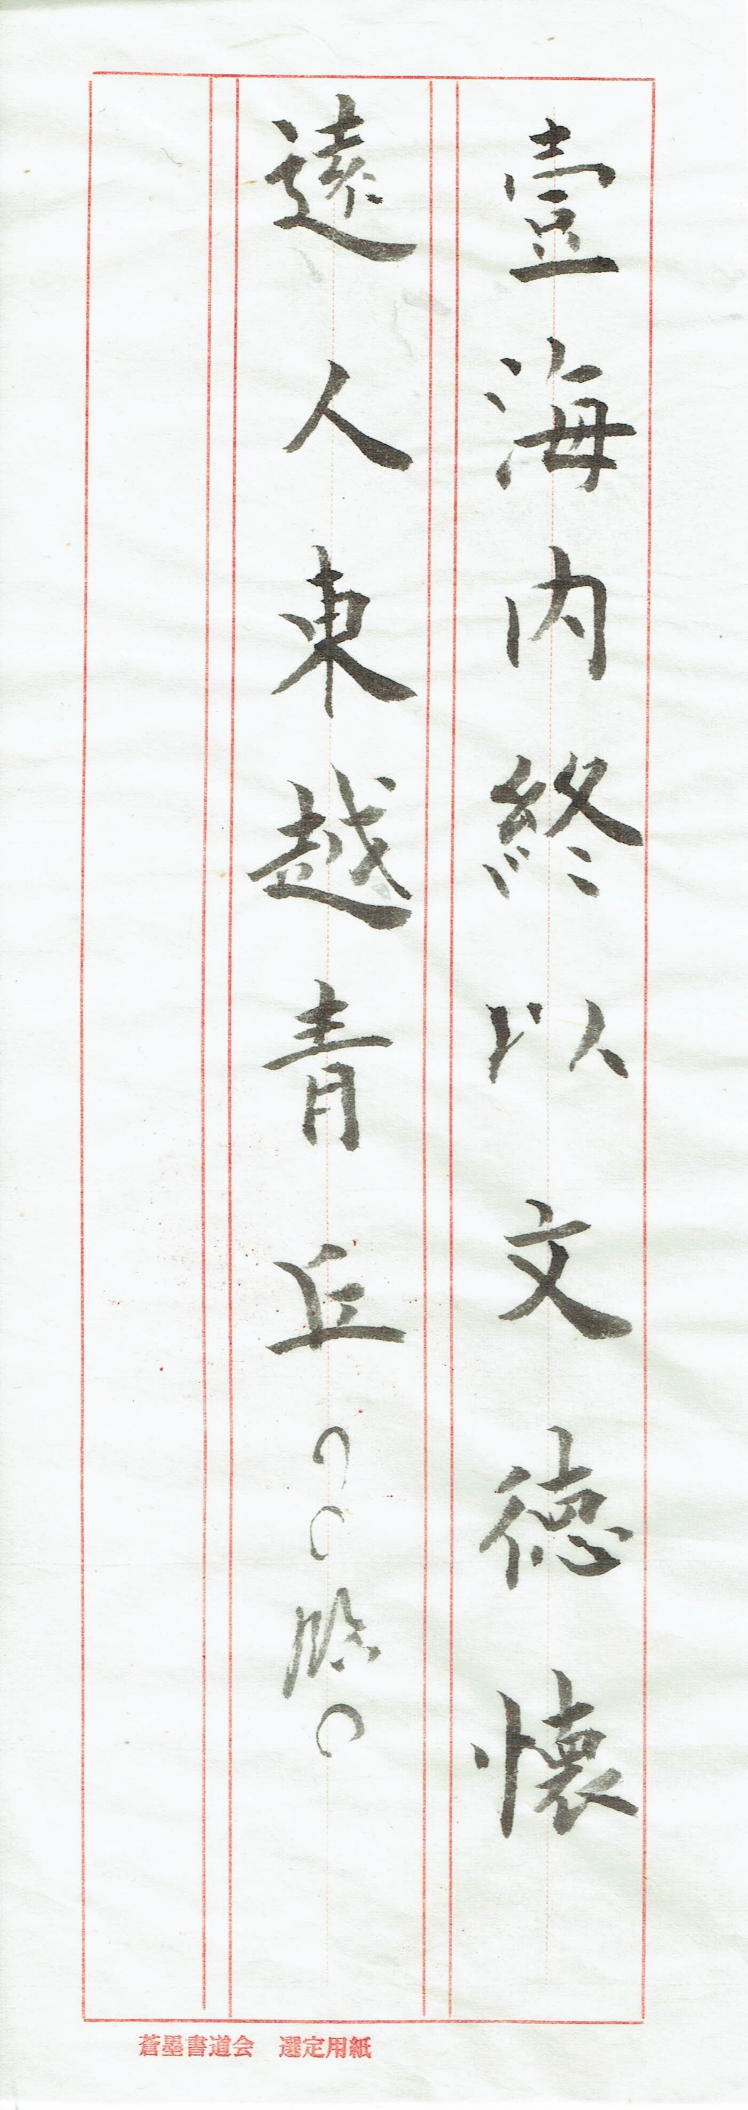 壹海内終以文徳懐
遠人東越青丘〇〇臨〇
蒼墨書道会　選定用紙